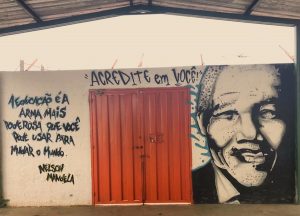 "ACREDITE em VOCÊ!"
A EDUCAÇÃO É A
ARMA MAIS
PODEROSA QUE VOCÊ
PODE USAR PARA
MUDAR O MUNDO.
NELSON
MANDELA